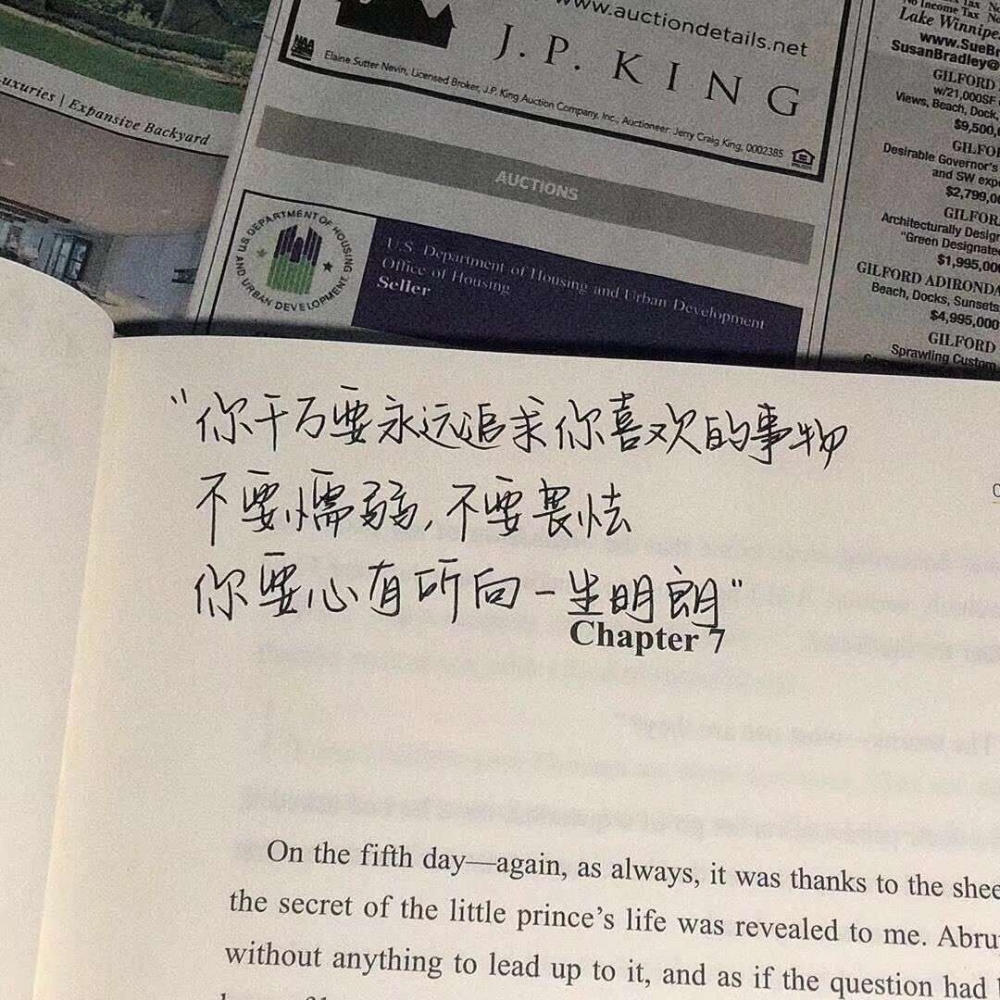 www.auctiondetails.net
J.P. KING
Elaine Sutter Nevin, Licensed Broker, J.P. King Auction Company, Inc., Auctioneer: Jerry Craig King, 0002385
uxuries | Expansive Backyard
AUCTIONS
U.S. DEPARTMENT OF HOUSING AND URBAN DEVELOPMENT
U.S. Department of Housing and Urban Development
Office of Housing
Seller
No Income Tax
Lake Winnipe
www.SueBr
SusanBradley@
GILFORD
w/21,000SF
Views, Beach, Dock,
$9,500,
GILFO
Desirable Governor's
and SW exp
$2,799,0
GILFOR
Architecturally Desig
"Green Designate
$1,995,000
GILFORD ADIRONDA
Beach, Docks, Sunsets
$4,995,000
GILFORD
Sprawling Custom
"你千万要永远追求你喜欢的事物
不要懦弱,不要畏怯
你要心有所向一生明朗"
Chapter 7
On the fifth day—again, as always, it was thanks to the shee
the secret of the little prince's life was revealed to me. Abru
without anything to lead up to it, and as if the question had